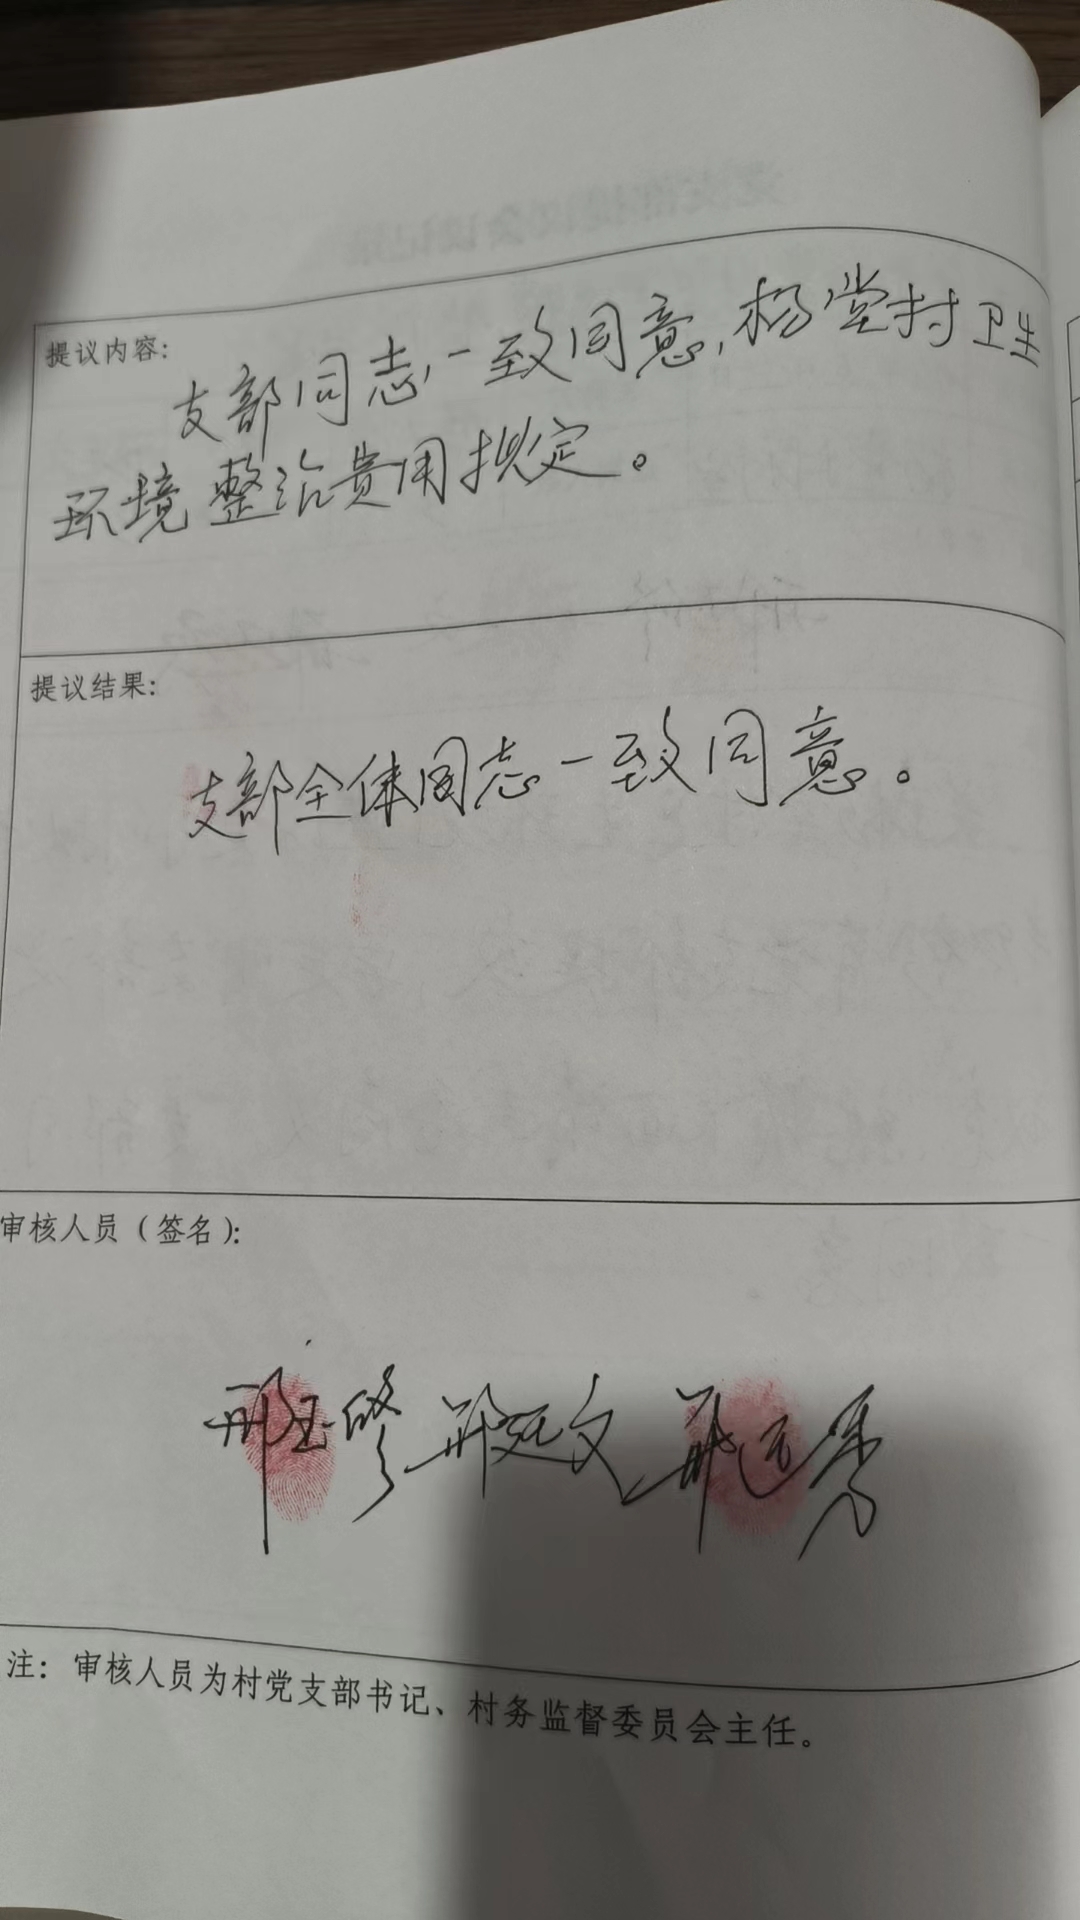 提议内容：
支部同志一致同意，杨堂村卫生
环境整治费用拟定。
提议结果：
支部全体同志一致同意。
审核人员（签名）：
邢玉修 邢延文
注：审核人员为村党支部书记、村务监督委员会主任。